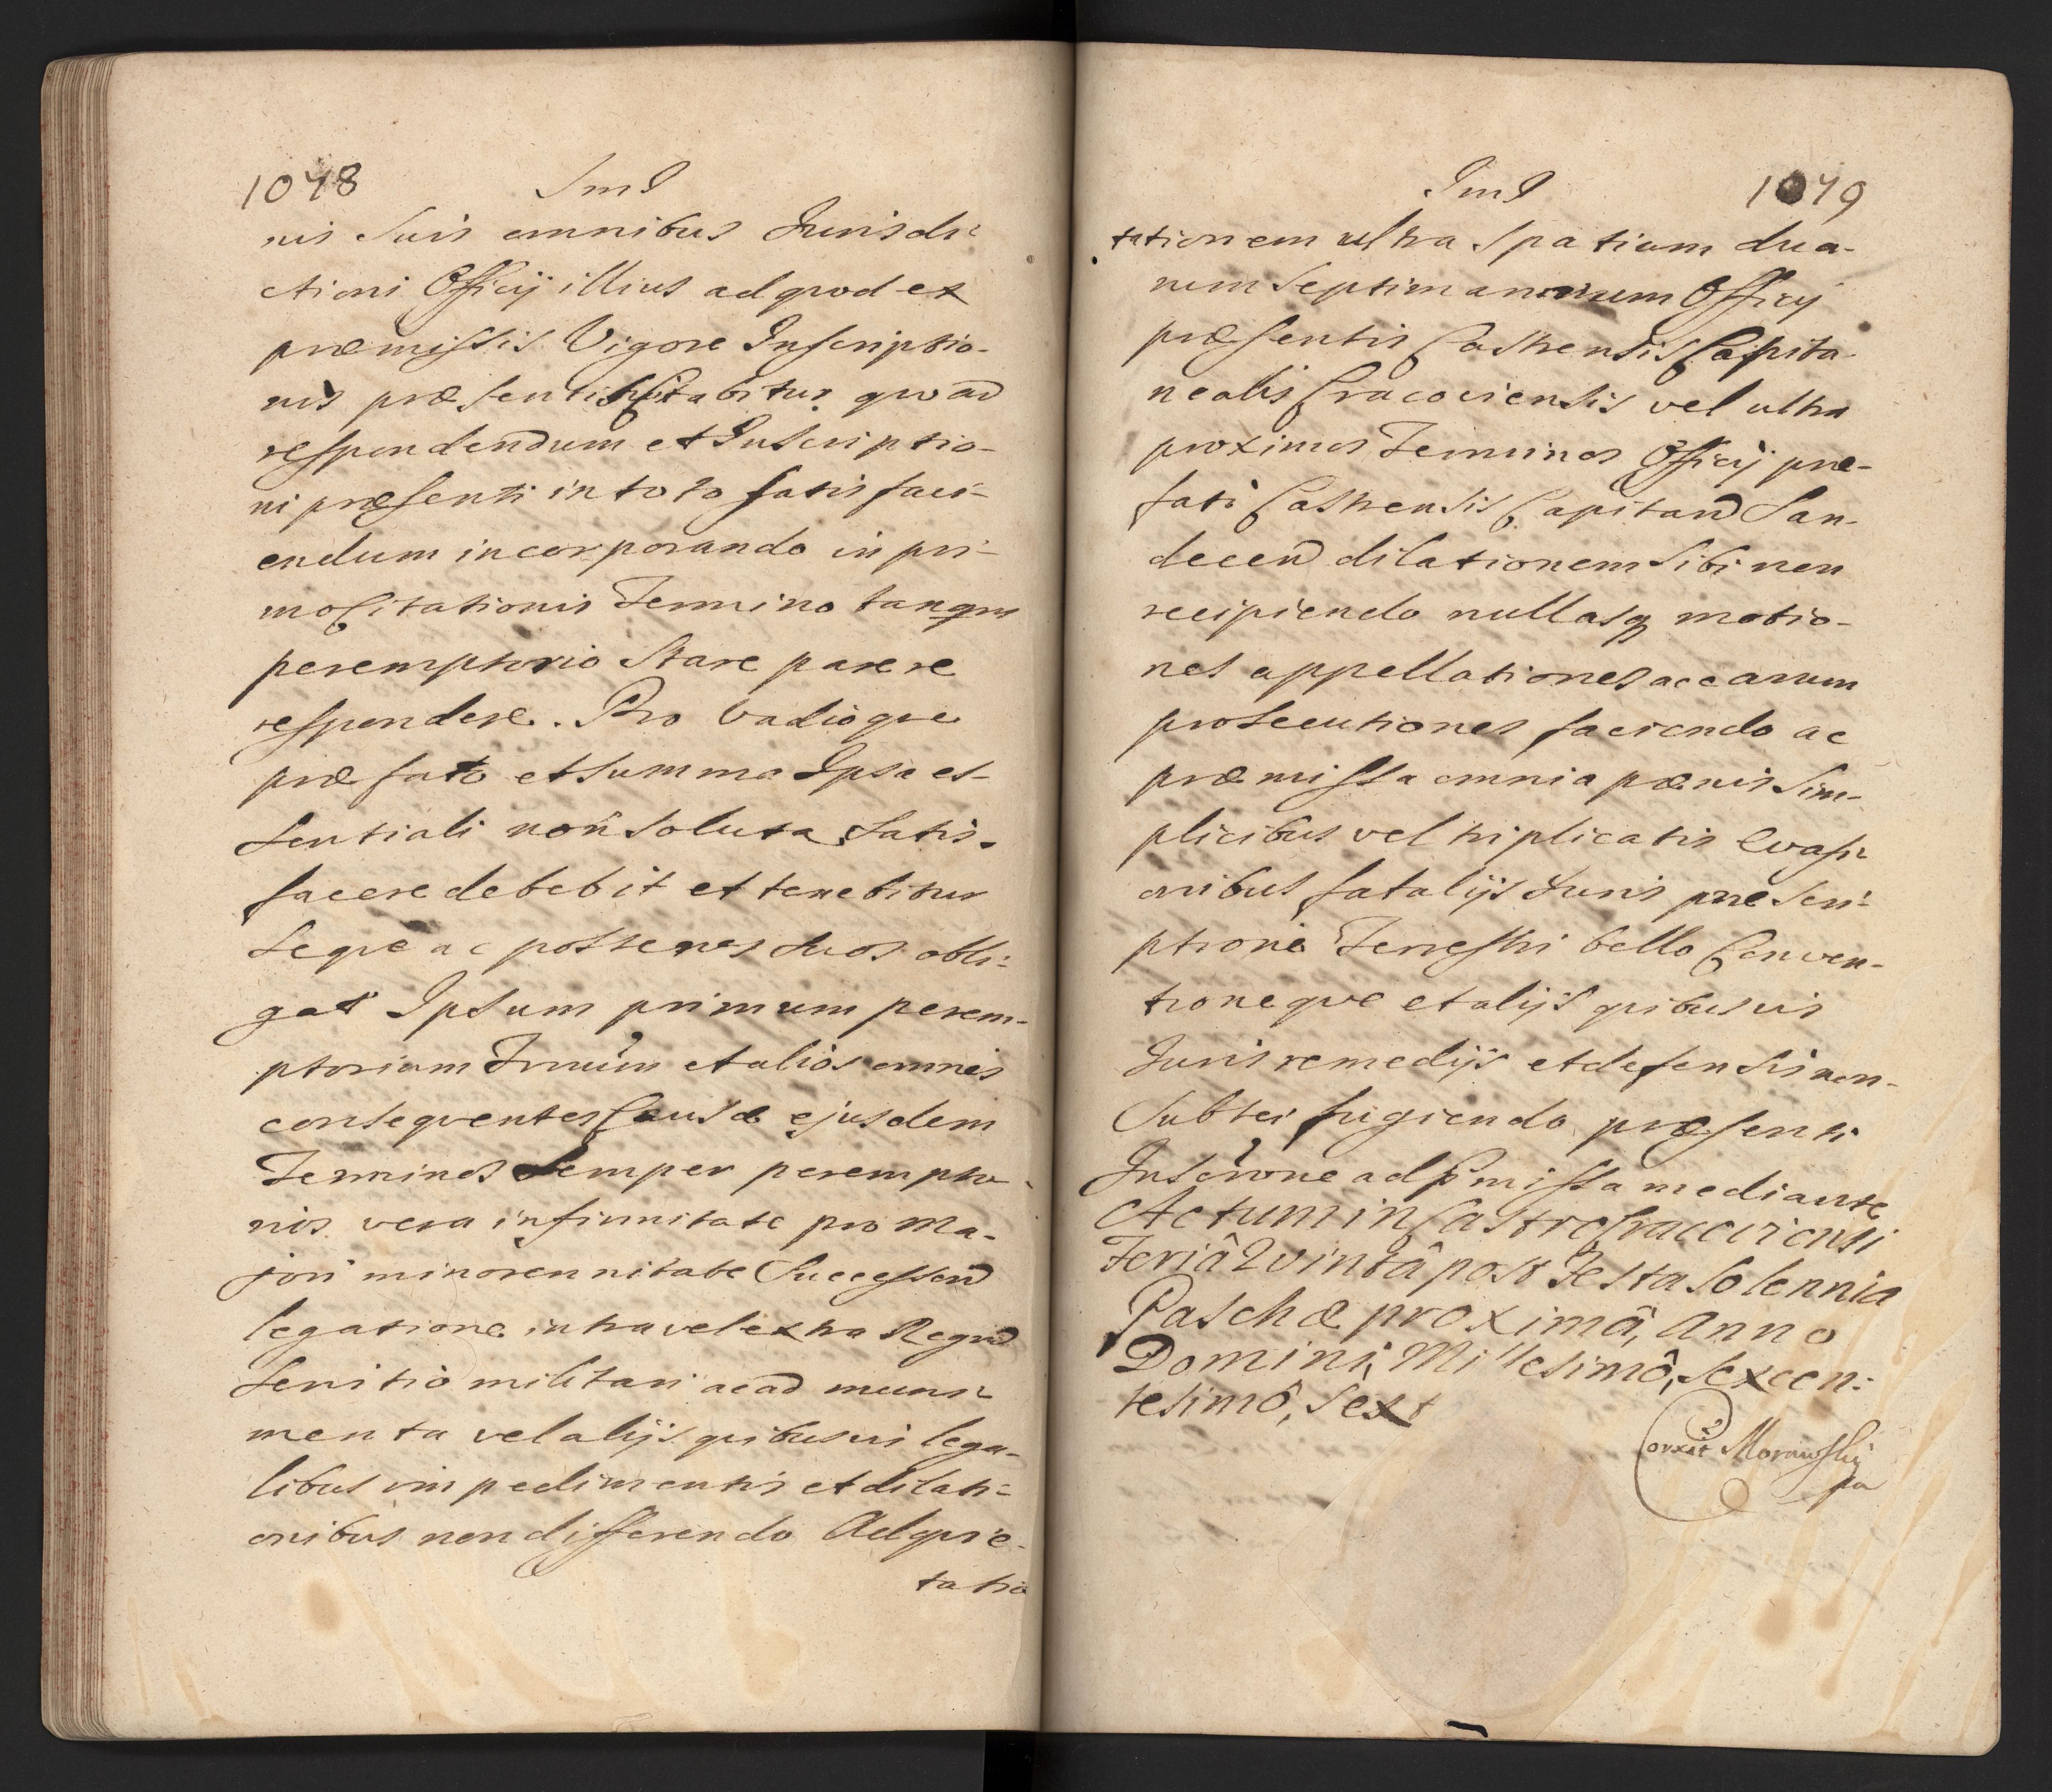 1078
nis suis omnibus Jurisdi-
ctioni Officij illius ad quod ex
præmissis Vigore Inscriptio-
nis præsentis citabitur quo ad
respondendum et Inscriptio-
ni præsenti in toto satis faci-
endum incorporando in pri-
mo Citationis Termino tanqm
peremptorio Stare parere
respondere. Pro Vadioque
præfato et summa Ipsa es-
sentiali non soluta satis-
facere debebit et tenebitur
seque ac posteros suos obli-
gat Ipsum primum perem-
ptorium Trnum et alios omnes
consequentes Causæ ejusdem
Terminos semper perempto-
rios vera infirmitate pro Ma-
jori minorennitate Successorū
legatione intra vel extra Regnū
servitio militari ac ad muni-
menta vel alijs quibusvis lega-
libus impedimentis et dilati-
onibus non differendo Ad quie-
tatio
1079
tationem ultra spatium dua-
rum septimanarum Officij
præsentis Castrensis Capita-
nealis Cracoviensis vel ultra
proximos Terminos Officij præ-
fati Castrensis Capitanē San-
decen dilationem sibi non
recipiendo nullasq motio-
nes appellationes ac earum
prosecutiones faciendo ac
præmissa omnia pænis sim-
plicibus vel triplicatis evasi-
onibus fatalijs Juris præscri-
ptione Terrestri bello Conven-
tioneque et alijs quibusvis
Juris remedijs et defensis non
subterfugiendo præsenti
Inscrone ad pmissa mediante
Actum in Castro Cracoviensi
Feriâ Quintâ post Festa Solennia
Paschæ proximâ, Anno
Domini, Millesimô, sexcen:
tesimô, sext
Corxit Morawski